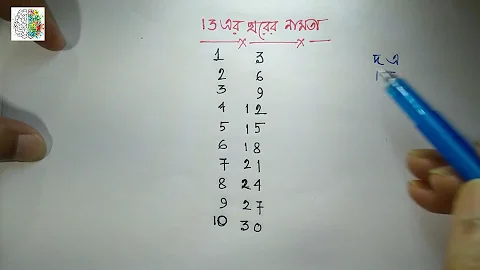 13 এর ঘরের নামতা
1 3
2 6
3 9
4 12
5 15
6 18
7 21
8 24
9 27
10 30
দ এ